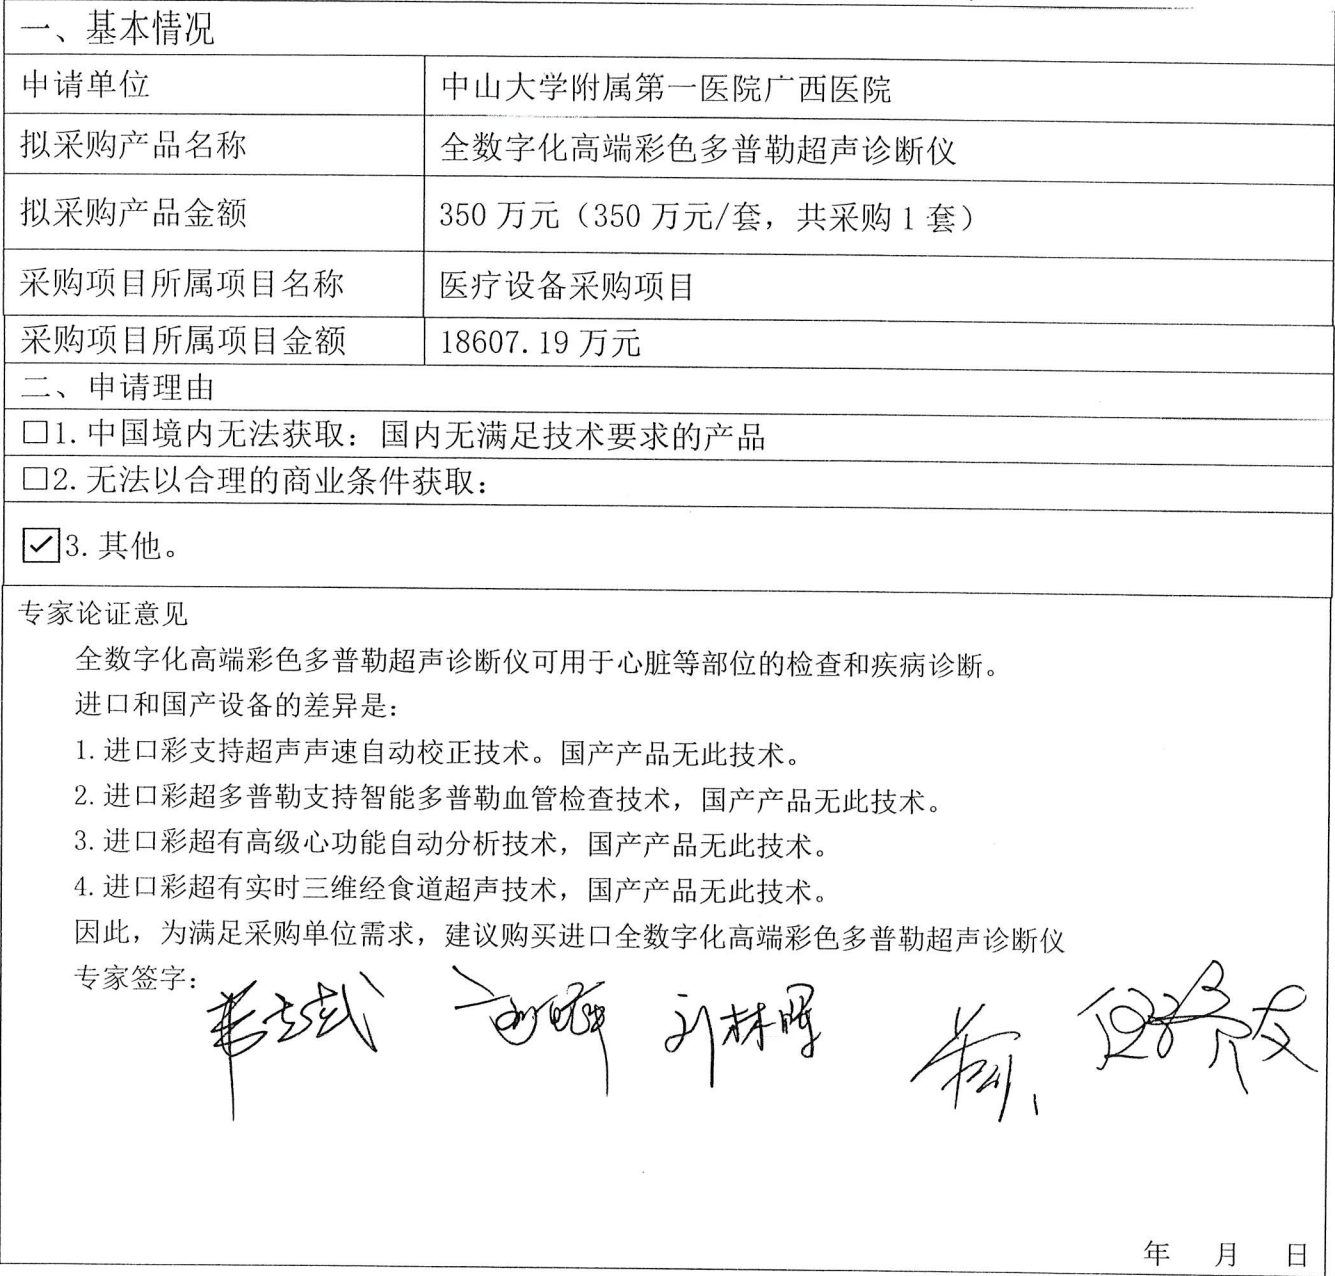 一、基本情况
申请单位 中山大学附属第一医院广西医院
拟采购产品名称 全数字化高端彩色多普勒超声诊断仪
拟采购产品金额 350万元（350万元/套，共采购1套）
采购项目所属项目名称 医疗设备采购项目
采购项目所属项目金额 18607.19万元
二、申请理由
□1.中国境内无法获取：国内无满足技术要求的产品
□2.无法以合理的商业条件获取：
☑3.其他。
专家论证意见
全数字化高端彩色多普勒超声诊断仪可用于心脏等部位的检查和疾病诊断。
进口和国产设备的差异是：
1.进口彩支持超声声速自动校正技术。国产产品无此技术。
2.进口彩超多普勒支持智能多普勒血管检查技术，国产产品无此技术。
3.进口彩超有高级心功能自动分析技术，国产产品无此技术。
4.进口彩超有实时三维经食道超声技术，国产产品无此技术。
因此，为满足采购单位需求，建议购买进口全数字化高端彩色多普勒超声诊断仪
专家签字： 刘林晖
年 月 日